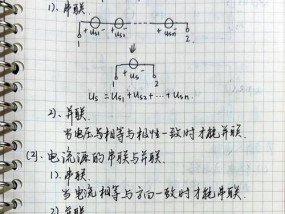 1). 串联
+ us1 - + us2 - + usn -
1 2
+ us -
1 2
us = us1 + us2 + ... + usn.
2). 并联
当电压与相等与极性一致时才能并联.
(2). 电流源的串联与并联.
1). 串联
当电流相等与方向一致时才能串联.
2). 并联